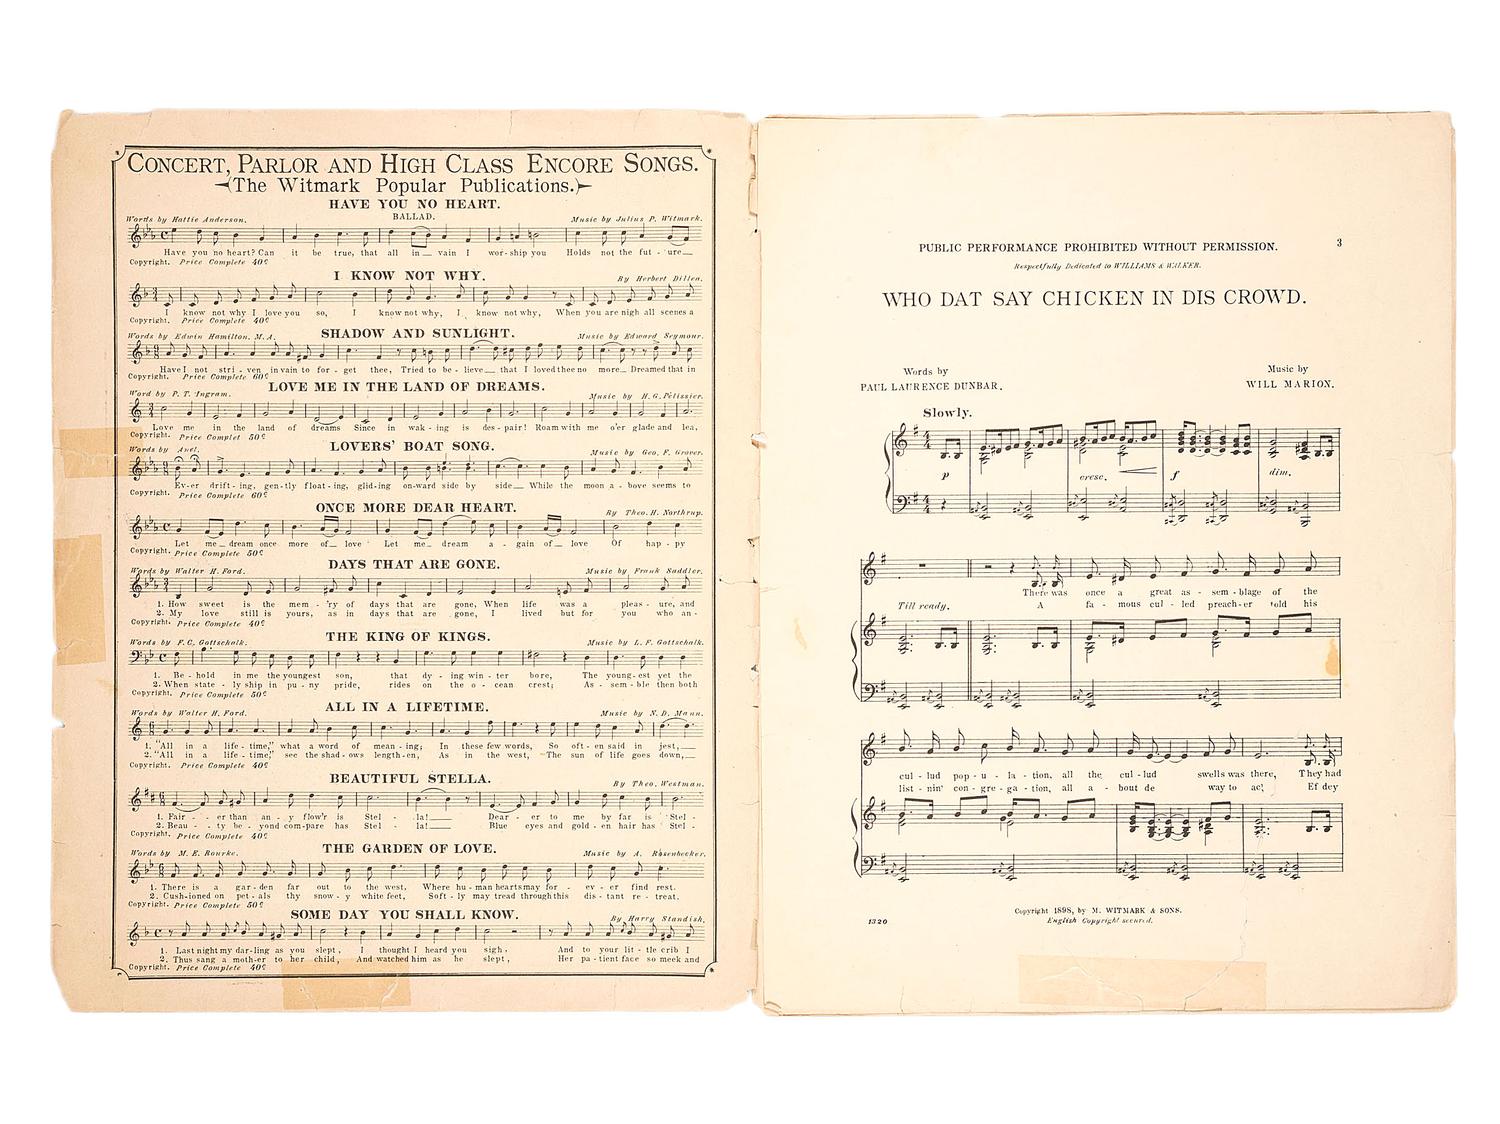 CONCERT, PARLOR AND HIGH CLASS ENCORE SONGS.
(The Witmark Popular Publications.)
HAVE YOU NO HEART.
Words by Hattie Anderson.
BALLAD.
Music by Julius P. Witmark.
Have you no heart? Can it be true, that all in vain I wor-ship you Holds not the fut-ure
Copyright. Price Complete 40¢
I KNOW NOT WHY.
By Herbert Dillea.
I know not why I love you so, I know not why, I know not why, When you are nigh all seems a
Copyright. Price Complete 40¢
SHADOW AND SUNLIGHT.
Words by Edwin Hamilton, M.A.
Music by Edward Seymour.
Have I not stri-ven in vain to for-get thee, Tried to be-lieve that I loved thee no more Dreamed that in
Copyright. Price Complete 60¢
LOVE ME IN THE LAND OF DREAMS.
Word by P. T. Ingram.
Music by H. G. Pélissier.
Love me in the land of dreams Since in wak-ing is des-pair! Roam with me o'er glade and lea,
Copyright. Price Complet 50¢
LOVERS' BOAT SONG.
Words by
Music by Geo. F. Grover.
Ev-er drift-ing, gen-tly float-ing, glid-ing on-ward side by side While the moon a-bove seems to
Copyright. Price Complete 60¢
ONCE MORE DEAR HEART.
By Theo. H. Northrup.
Let me dream once more of love Let me dream a-gain of love Of hap-py
Copyright. Price Complete 50¢
DAYS THAT ARE GONE.
Words by Walter H. Ford.
Music by Frank Saddler.
1. How sweet is the mem-'ry of days that are gone, When life was a pleas-ure, and
2. My love still is yours, as in days that are gone, I lived but for you who an-
Copyright. Price Complete 40¢
THE KING OF KINGS.
Words by F. C. Gottschalk.
Music by L. F. Gottschalk.
1. Be-hold in me the youngest son, that dy-ing win-ter bore, The young-est yet the
2. When state-ly ship in pu-ny pride, rides on the o-cean crest; As-sem-ble then both
Copyright. Price Complete 50¢
ALL IN A LIFETIME.
Words by Walter H. Ford.
Music by N. D. Mann.
1. "All in a life-time," what a word of mean-ing; In these few words, So oft-en said in jest,
2. "All in a life-time," see the shad-ows length-en, As in the west, The sun of life goes down,
Copyright. Price Complete 40¢
BEAUTIFUL STELLA.
By Theo. Westman.
1. Fair-er than an-y flow'r is Stel-la! Dear-er to me by far is Stel-
2. Beau-ty be-yond com-pare has Stel-la! Blue eyes and gold-en hair has Stel-
Copyright. Price Complete 40¢
THE GARDEN OF LOVE.
Words by M. E. Rourke.
Music by A. Rosenbecker.
1. There is a gar-den far out to the west, Where hu-man hearts may for-ev-er find rest.
2. Cush-ioned on pet-als thy snow-y white feet, Soft-ly may tread through this dis-tant re-treat.
Copyright. Price Complete 50¢
SOME DAY YOU SHALL KNOW.
By Harry Standish.
1. Last night my dar-ling as you slept, I thought I heard you sigh, And to your lit-tle crib I
2. Thus sang a moth-er to her child, And watched him as he slept, Her pa-tient face so meek and
Copyright. Price Complete 40¢
3
PUBLIC PERFORMANCE PROHIBITED WITHOUT PERMISSION.
Respectfully Dedicated to WILLIAMS & WALKER.
WHO DAT SAY CHICKEN IN DIS CROWD.
Words by
PAUL LAURENCE DUNBAR.
Music by
WILL MARION.
Slowly.
p cresc. f dim.
There was once a great as-sem-blage of the
Till ready. A fa-mous cul-led preach-er told his
cul-lud pop-u-la-tion, all the cul-lud swells was there, They had
list-nin' con-gre-ga-tion, all a-bout de way to ac', Ef dey
Copyright 1898, by M. WITMARK & SONS.
1320
English Copyright secured.